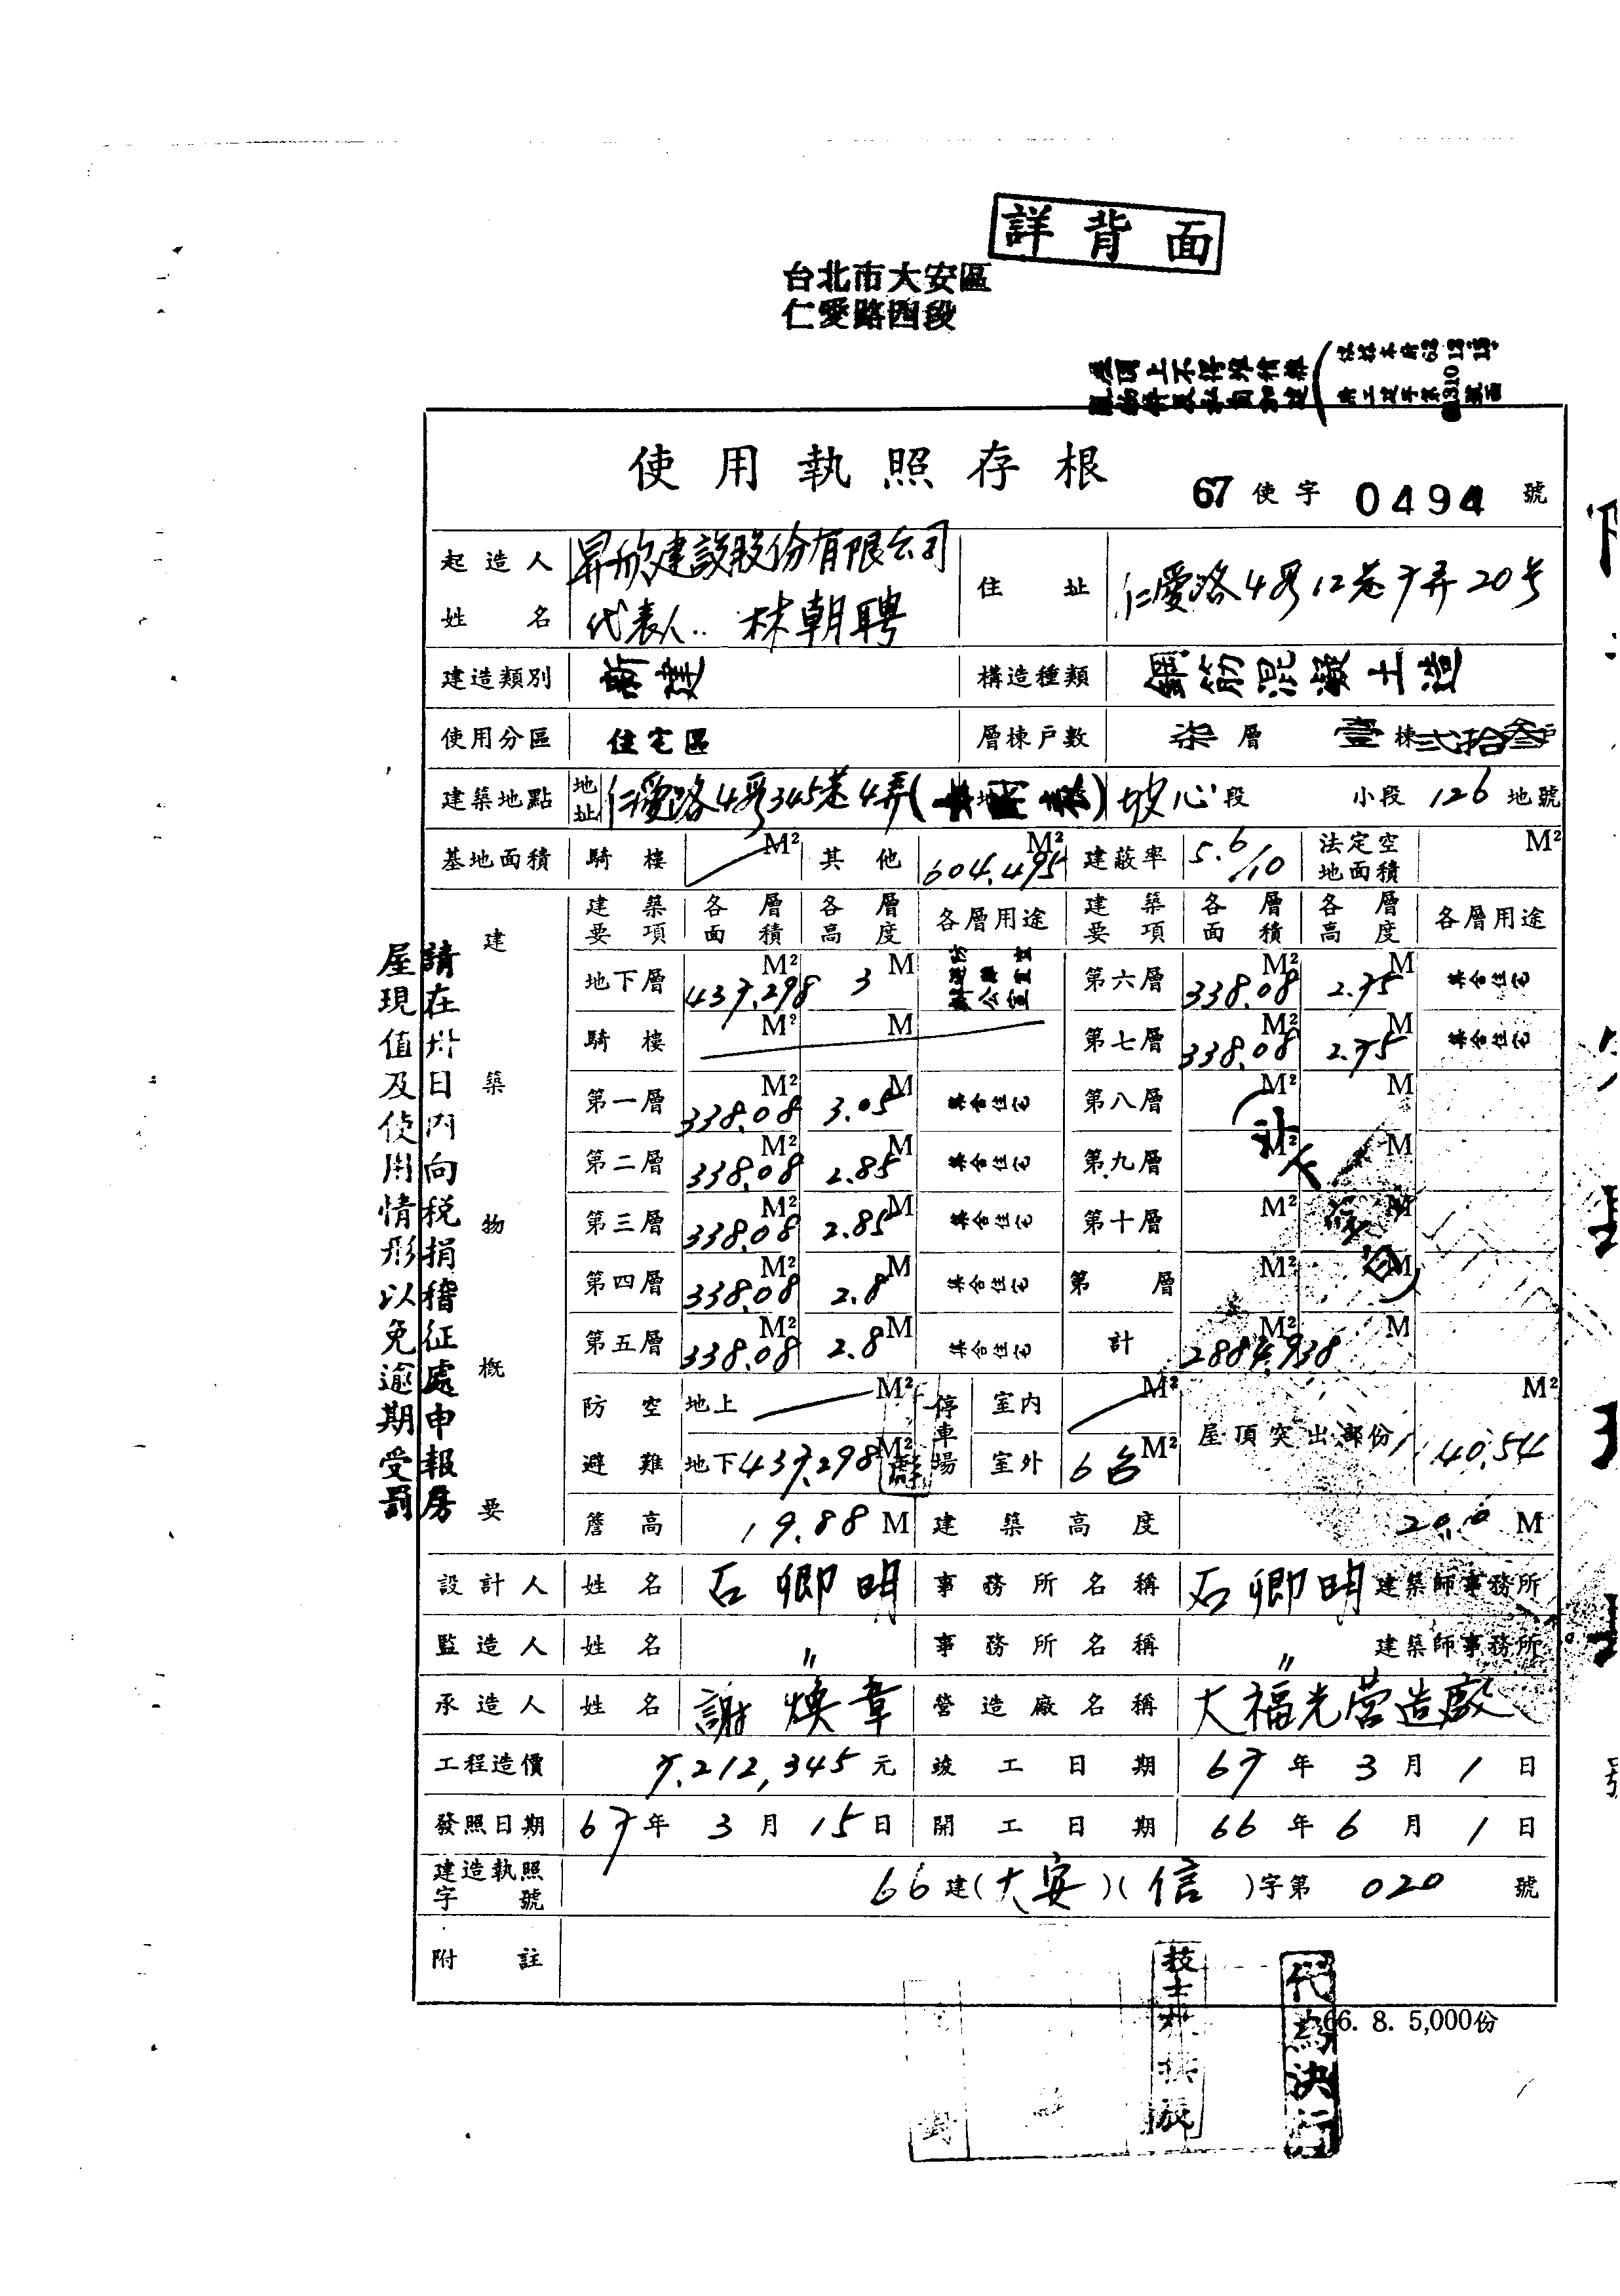 詳背面
台北市大安區
仁愛路四段
使用執照存根
67 使字 0494 號
起造人姓名 昇欣建設股份有限公司 代表人.. 林朝聘 住址 仁愛路4段12巷7弄20号
建造類別 新建 構造種類 鋼筋混凝土造
使用分區 住宅區 層棟戶數 柒層 壹棟 弍拾叁戶
建築地點 地址 仁愛路4段345巷4弄( ) 坡心段 小段 126 地號
基地面積 騎樓 M² 其他 604.495 M² 建蔽率 5.6/10 法定空地面積 M²
建築物概要
建築要項 各層面積 各層高度 各層用途 建築要項 各層面積 各層高度 各層用途
地下層 437.298 M² 3 M 第六層 338.08 M² 2.75 M 集合住宅
騎樓 M² M 第七層 338.08 M² 2.75 M 集合住宅
第一層 338.08 M² 3.05 M 集合住宅 第八層 M² M
第二層 338.08 M² 2.85 M 集合住宅 第九層 M² M
第三層 338.08 M² 2.85 M 集合住宅 第十層 M² M
第四層 338.08 M² 2.8 M 集合住宅 第 層 M² M
第五層 338.08 M² 2.8 M 集合住宅 計 2884.938 M² M
防空避難 地上 M² 停車場 室內 M² 屋頂突出部份 40.54 M²
地下 437.298 M² 室外 6台 M²
簷高 19.88 M 建築高度 20.0 M
設計人 姓名 石卿明 事務所名稱 石卿明 建築師事務所
監造人 姓名 〃 事務所名稱 〃 建築師事務所
承造人 姓名 謝煥章 營造廠名稱 大福光营造廠
工程造價 7,212,345 元 竣工日期 67 年 3 月 1 日
發照日期 67 年 3 月 15 日 開工日期 66 年 6 月 1 日
建造執照字號 66 建(大安)(信)字第 020 號
附註
66. 8. 5,000份
請在卅日內向稅捐稽征處申報房
屋現值及使用情形以免逾期受罰
代為決行